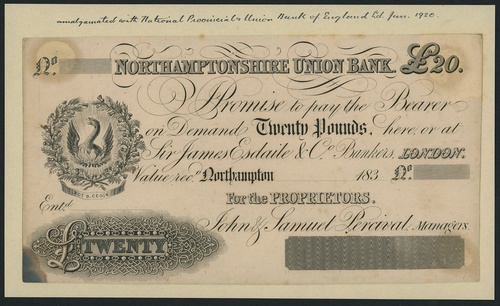 amalgamated with National Provincial & Union Bank of England Ld. Jan. 1920.
No NORTHAMPTONSHIRE UNION BANK. £20.
I Promise to pay the Bearer
on Demand Twenty Pounds, here, or at
Sir James Esdaile & Co. Bankers, LONDON.
Value recd. Northampton 183 No
For the PROPRIETORS.
Entd.
John & Samuel Percival, Managers.
£TWENTY